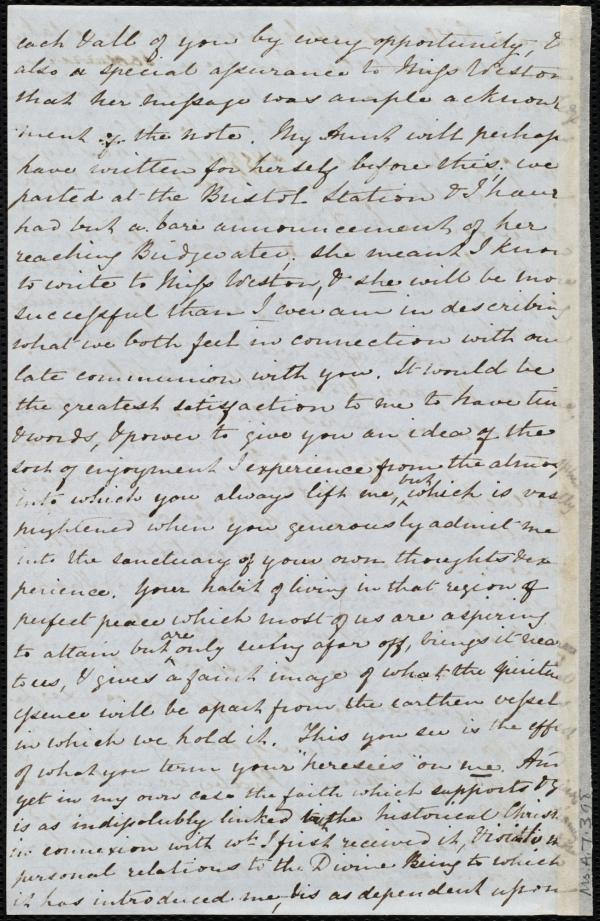 each & all of you by every opportunity, &
also a special assurance to Miss Weston
that her message was ample acknowl
ment of the note. My Aunt will perhaps
have written for herself before this; we
parted at the Bristol Station & I have
had but a bare announcement of her
reaching Bridgwater; she meant I know
to write to Miss Weston, & she will be more
successful than I ever am in describing
what we both feel in connection with our
late communion with you. It would be
the greatest satisfaction to me to have time
& words, & power to give you an idea of the
sort of enjoyment I experience from the atmos
into which you always lift me, but which is vas
heightened when you generously admit me
into the sanctuary of your own thoughts & ex
perience. Your habit of living in that region of
perfect peace which most of us are aspiring
to attain but are only seeing afar off, brings it near
to us, & gives a faint image of what the spiritu
essence will be apart from the earthen vessel
in which we hold it. This you see is the effe
of what you term your "heresies" on me. And
yet in my own case the faith which supports &
is as indissolubly linked with the historical Christ
in connexion with wh. I first received it, &
personal relations to the Divine Being to which
it has introduced me, & is as dependent upon
Ms.A.7.3.98